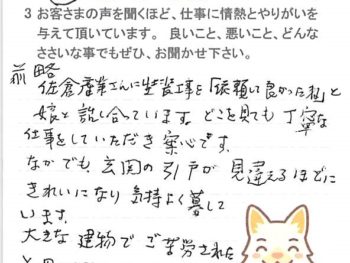 3 お客さまの声を聞くほど、仕事に情熱とやりがいを
与えて頂いています。 良いこと、悪いこと、どんな
ささいな事でもぜひ、お聞かせ下さい。
前略
佐倉産業さんに塗装工事を「依頼して良かったね」と
娘と話し合っています。どこを見ても丁寧な
仕事をしていただき安心です。
なかでも玄関の引戸が見違えるほどに
きれいになり気持よく暮して
います。
大きな建物でご苦労された